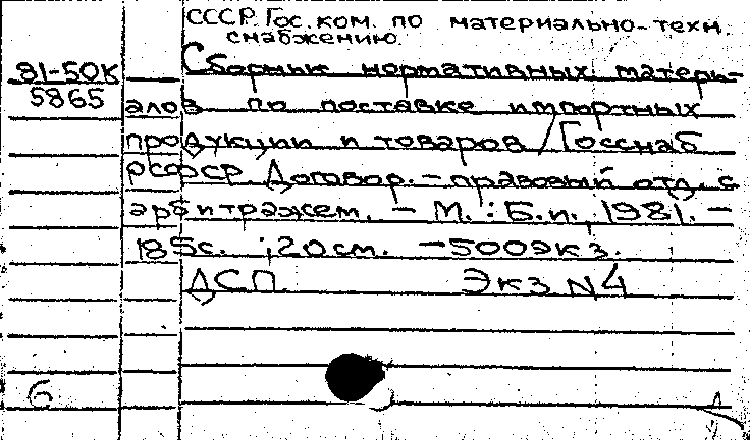 СССР. Гос. ком. по материально-техн.
снабжению.
81-50К
Сборник нормативных матери-
5865
алов по поставке импортных
продукции и товаров / Госснаб
РСФСР. Договор.-правовый отд. с
арбитражем. - М. : Б.и., 1981. -
185с. ; 20см. - 500экз.
ДСП Экз N4
б